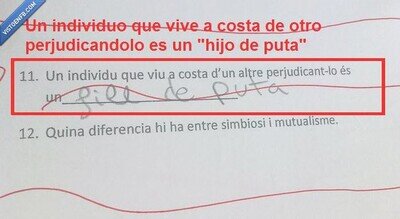 Un individuo que vive a costa de otro
perjudicandolo es un "hijo de puta"
VISTOENFB.COM
11. Un individu que viu a costa d'un altre perjudicant-lo és
un fill de puta
12. Quina diferencia hi ha entre simbiosi i mutualisme.